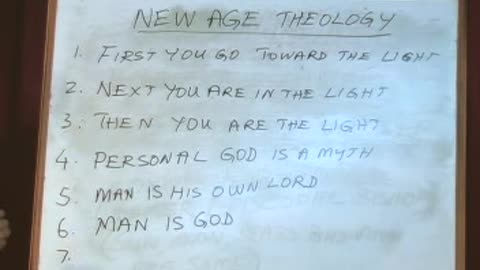 NEW AGE THEOLOGY
1. FIRST YOU GO TOWARD THE LIGHT
2. NEXT YOU ARE IN THE LIGHT
3. THEN YOU ARE THE LIGHT
4. PERSONAL GOD IS A MYTH
5. MAN IS HIS OWN LORD
6. MAN IS GOD
7.